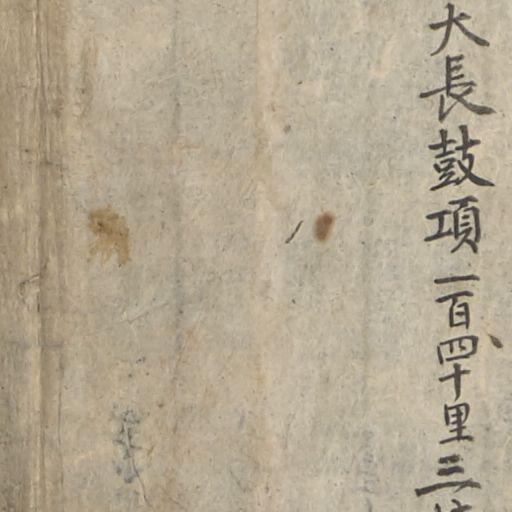 大長鼓項一百四十里三